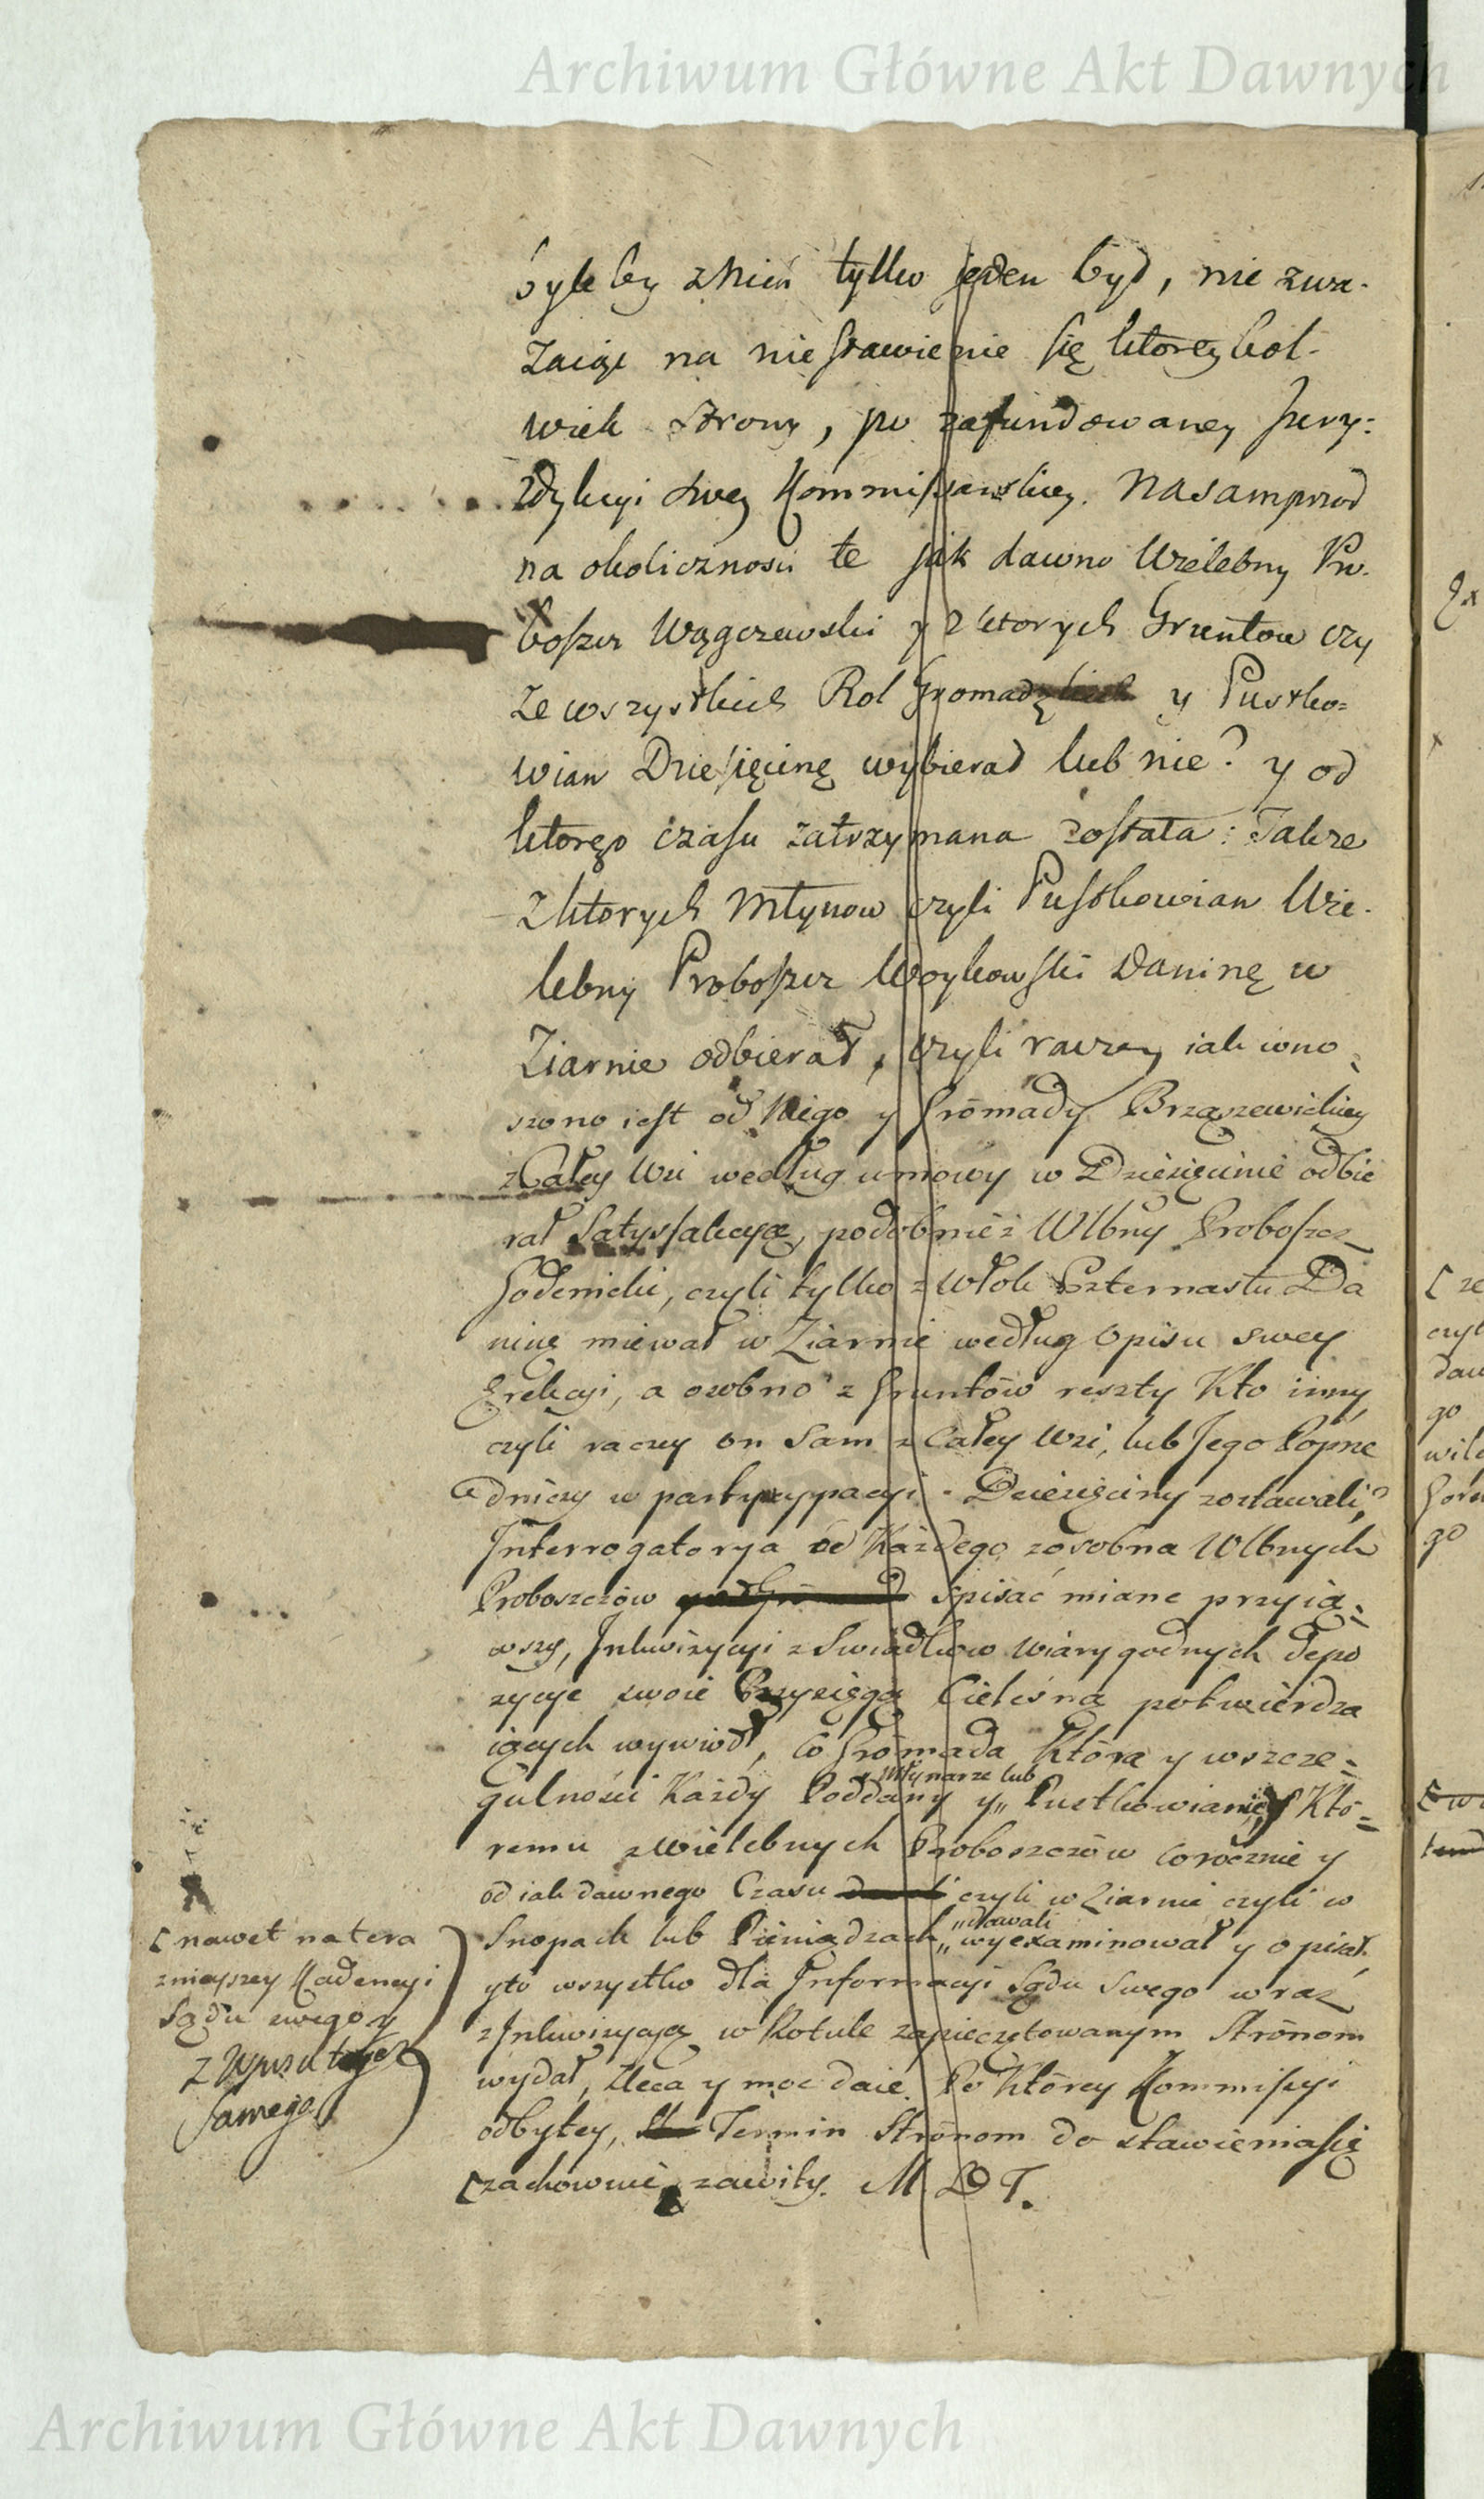 Archiwum Główne Akt Dawnych
byleby z Nich tylko jeden był, nie zwa-
zaiąc na nie stawienie się ktoreykol-
wiek strony, po zafundowaney Jury:
zdykcyi swey Kommissarskiey. Nasamprzod
na okolicznosci te jak dawno Wielebny Pro-
boszcz Wągczewski y z ktorych Gruntow czy
ze wszystkich Rol Gromadzkich y Pustko=
wian Dziesięcinę wybierał lub nie? y od
ktorego czasu zatrzymana została: Takze
z ktorych Młynow czyli Pustkowian Wie-
lebny Proboszcz Woykowski Daninę w
Ziarnie odbierał, czyli raczey iak wno
szono iest od Niego y Gromady Brząszewickiey
z Całey Wsi według umowy w Dziesięcinie odbie
rał Satysfakcyą, podobnież Wlbny Proboszcz
Godenicki, czyli tylko z Włok Czternastu Da
ninę miewał w Ziarnie według Opisu swey
Erekcyi, a osobno z Gruntów reszty Kto inny,
czyli raczey on Sam z Całey Wsi, lub Jego Poprze
dniczy w partycyppacyi Dziesięciny zostawali?
Interrogatorya od Każdego zosobna Wlbnych
Proboszczów spisać miane przyią=
wszy, Inkwizycyi z Swiadkow Wiary godnych depo
zycye swoie Przysięgą Cielesną potwierdza
iących wywiodł, Co Gromada Która y wszcze=
młynarze lub
gulności Każdy Poddany y,, Pustkowianie, Któ=
remu z Wielebnych Proboszczów corocznie y
od iak dawnego Czasu czyli w Ziarnie czyli w
,,dawali
Snopach lub Pieniądzach,, wyexaminował y opisał,
yto wszystko dla Informacyi Sądu Swego wraz
z Inkwizycyą w Rotule zapieczętowanym Stronom
wydał, zleca y moc daie. Po Którey Kommissyi
odbytey, Termin Stronom do stawienia się
[zachowuie zawity. M D T.
[nawet na tera
znieyszey Kadencyi
Sądu swego y
samego
Archiwum Główne Akt Dawnych